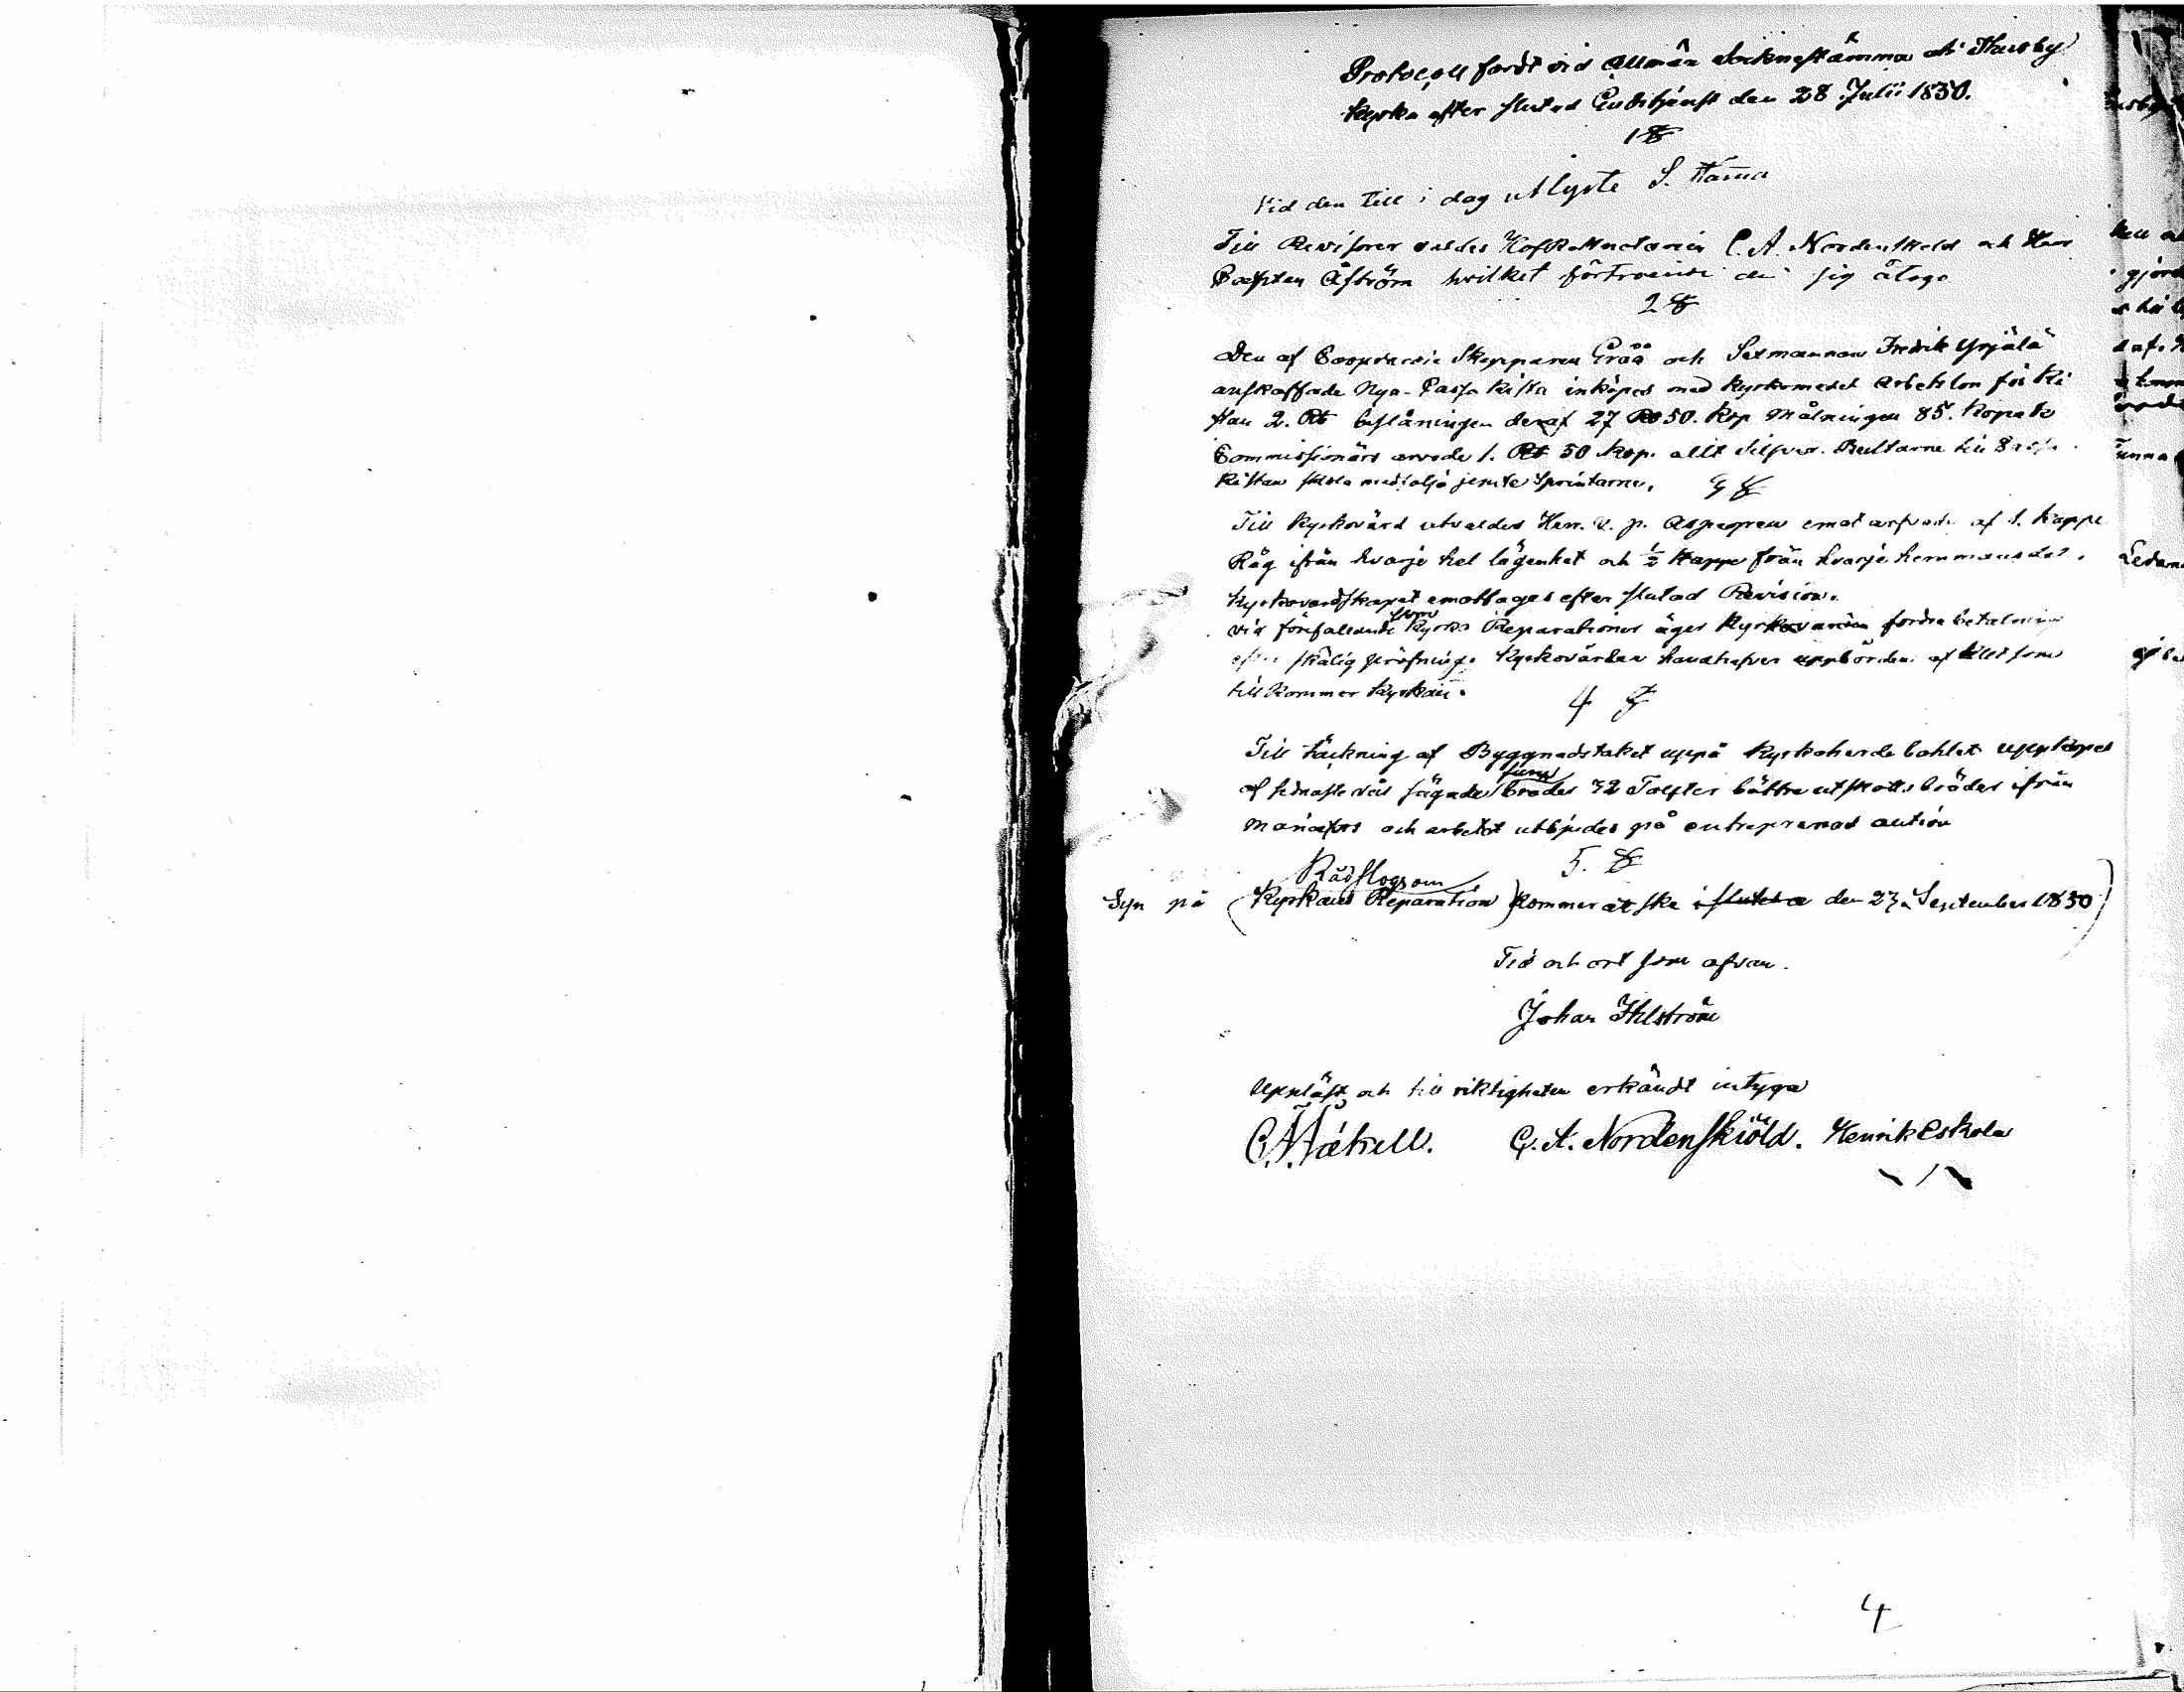 Protocoll fördt vid Allmän Sockenstämma i Thusby
Kyrka efter slutad Gudstjenst den 28 Julii 1850.
1 §
Vid den till i dag utlyste S. stäma
Till Revisorer valdes Hofrättsnotarien C. A. Nordenskold och Herr
Capten Åström hvilket förtroende de sig åtogo
2 §
Den af Skepparen Gråå och Sexmannen Fredrik Yrjälä
anskaffade Nya Cassa Kista inköpes med Kyrkomedel Arbetslön för Ki
stan 2. Rb beslåningen deraf 27 Rb 50. Kop Målningen 85. Kopek
Commissionärs arvode 1. Rb 50 Kop. allt Silfver. Bultarne till Cassa
Kistan skola medfölja jemte Sprintarne. 3 §
Till Kyrkovärd utvaldes Herr. V. p. Aspegren emot arfvode af 1. Kappe
Råg ifrån hvarje hel lägenhet och ½ Kappe från hvarje hemmansdel.
Kyrkovärdskapet emottages efter slutad Revision.
vid förefallande större Kyrko Reparationer äger Kyrkovärden fordra betalning
efter skälig pröfning. Kyrkovärden handhafver uppbörden af allt som
tillkommer Kyrkan.
4 §
Till täckning af Byggnadstaket uppå Kyrkoherdebohlet uppköpes
af sågade furu bräder 72 Tolfter bättre utskotts bräder ifrån
Mariefors och arbetet utbjudes på entreprenad auction
5. §
Rådslog om
Syn på (Kyrkans Reparation) kommer at ske i slutet a den 23 September 1850)
Tid och ort som ofvan.
Johan Ihlström
Uppläst och till riktigheten erkändt intyga
C. A. Nordenskiöld. Henrik Eskola
4